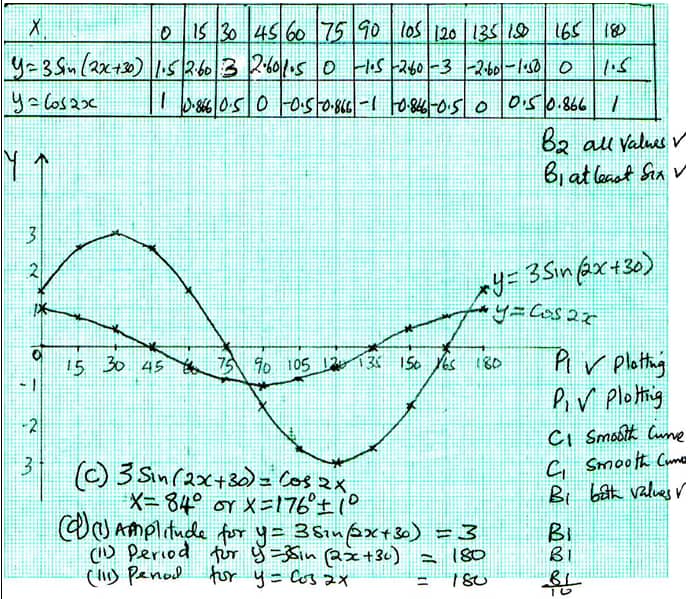 X 0 15 30 45 60 75 90 105 120 135 150 165 180
y = 3 Sin (2x+30) 1.5 2.60 3 2.60 1.5 0 -1.5 -2.60 -3 -2.60 -1.50 0 1.5
y = Cos 2x 1 0.866 0.5 0 -0.5 -0.866 -1 -0.866 -0.5 0 0.5 0.866 1
B2 all values ✓
B1 at least six ✓
Y
3
2
1
0
-1
-2
3
15 30 45 60 75 90 105 120 135 150 165 180
y = 3 Sin (2x+30)
y = Cos 2x
P1 ✓ plotting
P1 ✓ plotting
C1 Smooth Curve
C1 Smooth Curve
(c) 3 Sin (2x+30) = Cos 2x
X = 84° or X = 176° ± 1° B1 both values ✓
(d) (i) Amplitude for y = 3 Sin (2x+30) = 3 B1
(ii) Period for y = 3Sin (2x+30) = 180 B1
(iii) Period for y = Cos 2x = 180 B1
10